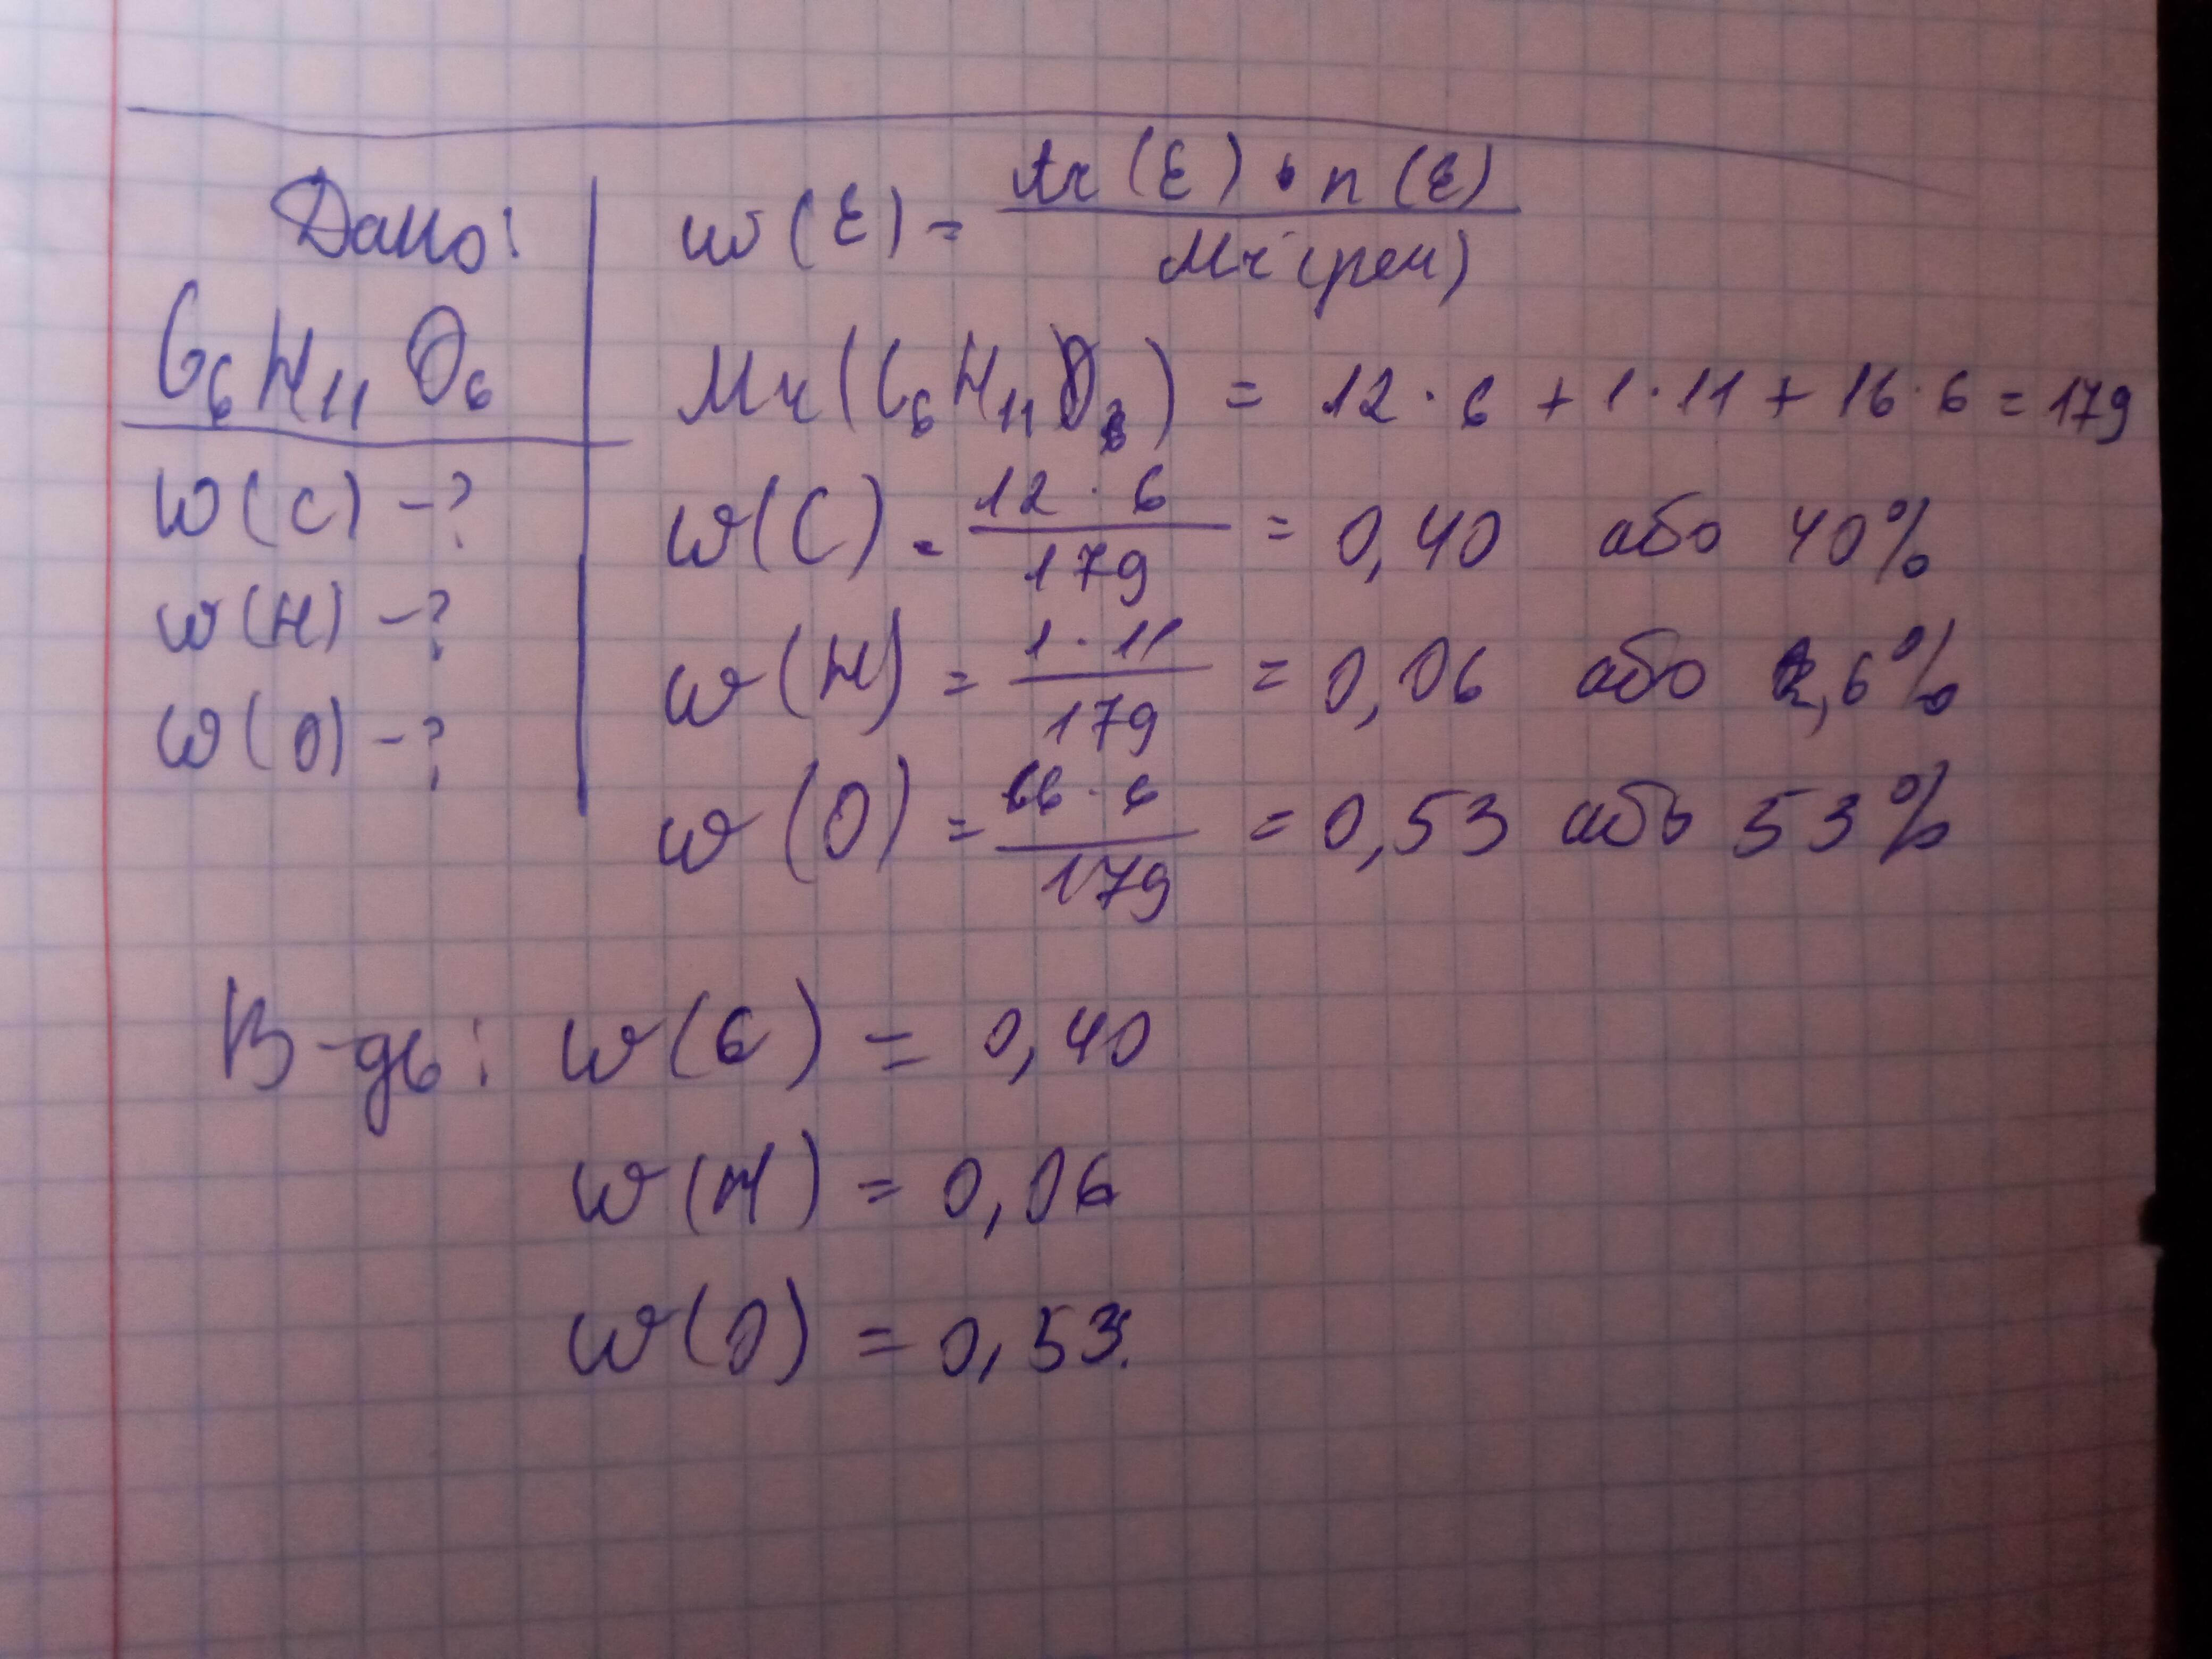 Дано:
C₆H₁₁O₆
w(C) -?
w(H) -?
w(O) -?
w(E) = Ar(E) • n(E) / Mr(реч)
Mr(C₆H₁₁O₆) = 12 · 6 + 1 · 11 + 16 · 6 = 179
w(C) = 12 · 6 / 179 = 0,40 або 40%
w(H) = 1 · 11 / 179 = 0,06 або 6%
w(O) = 16 · 6 / 179 = 0,53 або 53%
В-дь: w(C) = 0,40
w(H) = 0,06
w(O) = 0,53.